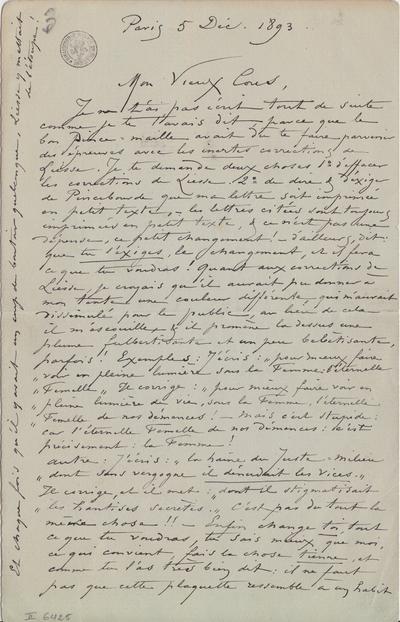 Paris 5 Déc. 1893
Mon Vieux Cous,
Je ne t'ai pas écrit tout de suite
comme je te l'avais dit, parce que le
bon Pince-maille avait dû te faire parvenir
des épreuves avec les inertes corrections de
Liesse. Je te demande deux choses 1º d'effacer
les corrections de Liesse. 2º de dire, & d'exiger
de Pincebourde que ma lettre soit imprimée
en petit texte, – les lettres citées sont toujours
imprimées en petit texte, & ce n'est pas une
dépense, ce petit changement! – d'ailleurs, dit
que tu l'exiges, le changement, et il fera
ce que tu voudras! Quant aux corrections de
Liesse, je croyais qu'il aurait pu donner à
mon texte une couleur différente, qui m'aurait
dissimulé pour le public, au lieu de cela
il et il promène là dessus une
plume et un peu bébêtisante,
parfois! Exemples: J'écris: „pour mieux faire
„voir en pleine lumière sous la Femme: l'éternelle
„Femelle„. Il corrige: „pour mieux faire voir en
„pleine lumière de vie, sous la Femme, l'éternelle
„Femelle de nos démences! – mais c'est stupide:
car l'éternelle Femelle de nos démences: c'est
précisément: la Femme!
autre: J'écris: „la haine du Juste-milieu
„dont sans vergogne il dénudait les vices.„
Il corrige, et il met: „dont il stigmatisait
„les hantises secrètes.„ C'est pas du tout la
même chose!! – Enfin change toi tout
ce que tu voudras, tu sais mieux que moi,
ce qui convient, fais la chose tienne, et
comme tu l'as très bien dit: il ne faut
pas que cette plaquette ressemble à un habit
Et chaque fois qu'il y avait un coup de boutoir quelconque, Liesse y mettait
de l'étoupe!
II 6425